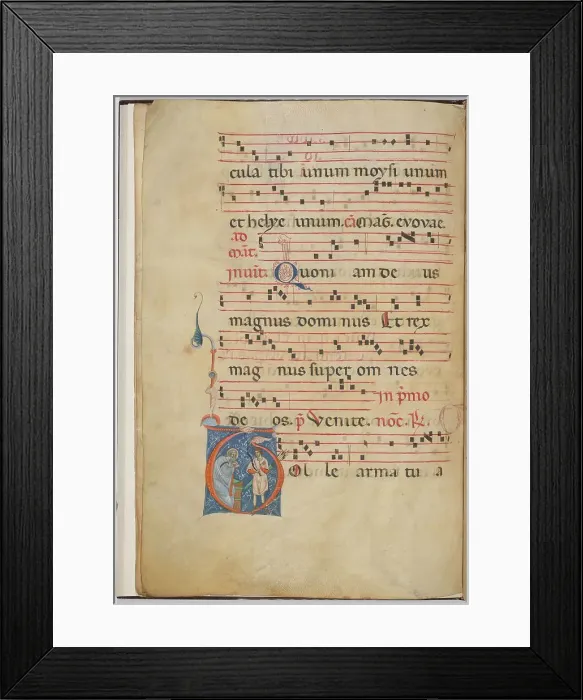 cula tibi unum moysi unum
et helye unum. cā mag̃. evovae.
ad
mat̃.
invit̃. Quoni am de us
magnus domi nus Et rex
mag nus super om nes
in p̃mo
de os. p̃ Venite. noc̃. R.
Ol le arma tu a